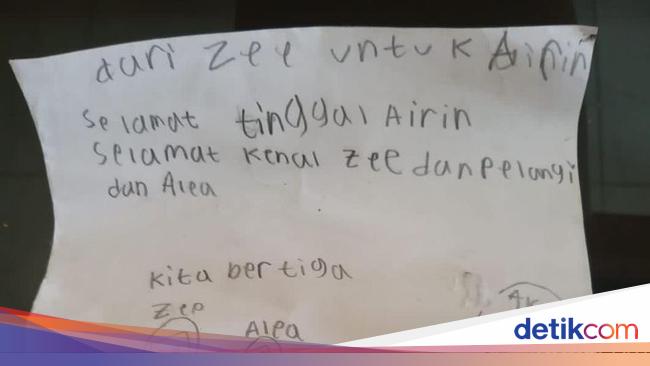 dari Zee untuk Airin
Selamat tinggal Airin
Selamat kenal Zee dan Pelangi
dan Alea
Kita bertiga
Zee
Alea
detikcom